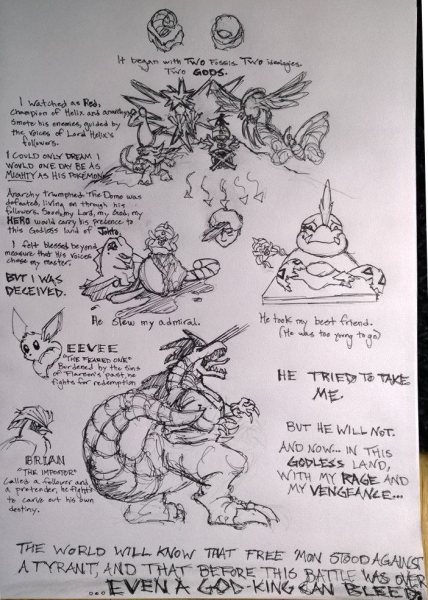 It began with TWO Fossils. TWO ideologies.
TWO GODS.
I watched as Red,
Champion of Helix and anarchy
Smote his enemies, guided by
the voices of Lord Helix's
followers.
I COULD ONLY DREAM I
WOULD ONE DAY BE AS
MIGHTY AS HIS POKEMON.
Anarchy triumphed. The Dome was
defeated, living on through his
followers. Soon, my Lord, my God, my
HERO would carry his presence to
this Godless land of Johto.
I felt blessed beyond
measure that His voices
chose my master.
BUT I WAS
DECEIVED.
He slew my admiral.
He took my best friend.
(He was too young to go)
EEVEE
"THE FEARED ONE"
Burdened by the sins
of Flareon's past, he
fights for redemption
HE TRIED TO TAKE
ME.
BUT HE WILL NOT.
AND NOW... IN THIS
GODLESS LAND,
WITH MY RAGE AND
MY VENGEANCE...
BRIAN
"THE IMPOSTER"
Called a follower and
a pretender, he fights
to carve out his own
destiny.
THE WORLD WILL KNOW THAT FREE 'MON STOOD AGAINST
A TYRANT, AND THAT BEFORE THIS BATTLE WAS OVER
...EVEN A GOD-KING CAN BLEED.